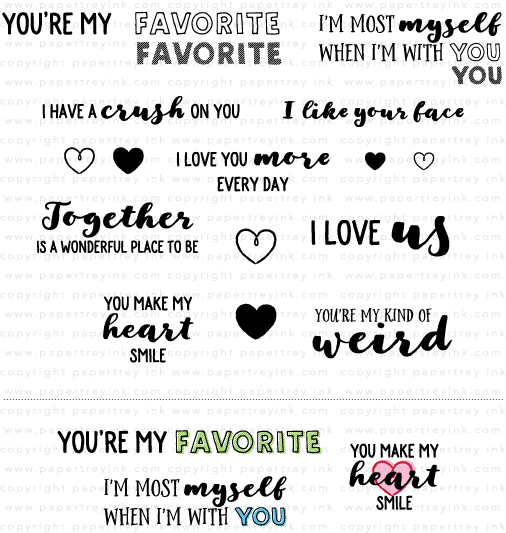 YOU'RE MY FAVORITE
FAVORITE
I'M MOST myself
WHEN I'M WITH YOU
YOU
I HAVE A crush ON YOU
I like your face
I LOVE YOU more
EVERY DAY
Together
IS A WONDERFUL PLACE TO BE
I LOVE us
YOU MAKE MY
heart
SMILE
YOU'RE MY KIND OF
weird
YOU'RE MY FAVORITE
I'M MOST myself
WHEN I'M WITH YOU
YOU MAKE MY
heart
SMILE
copyright papertreyink.com
www.papertreyink.com